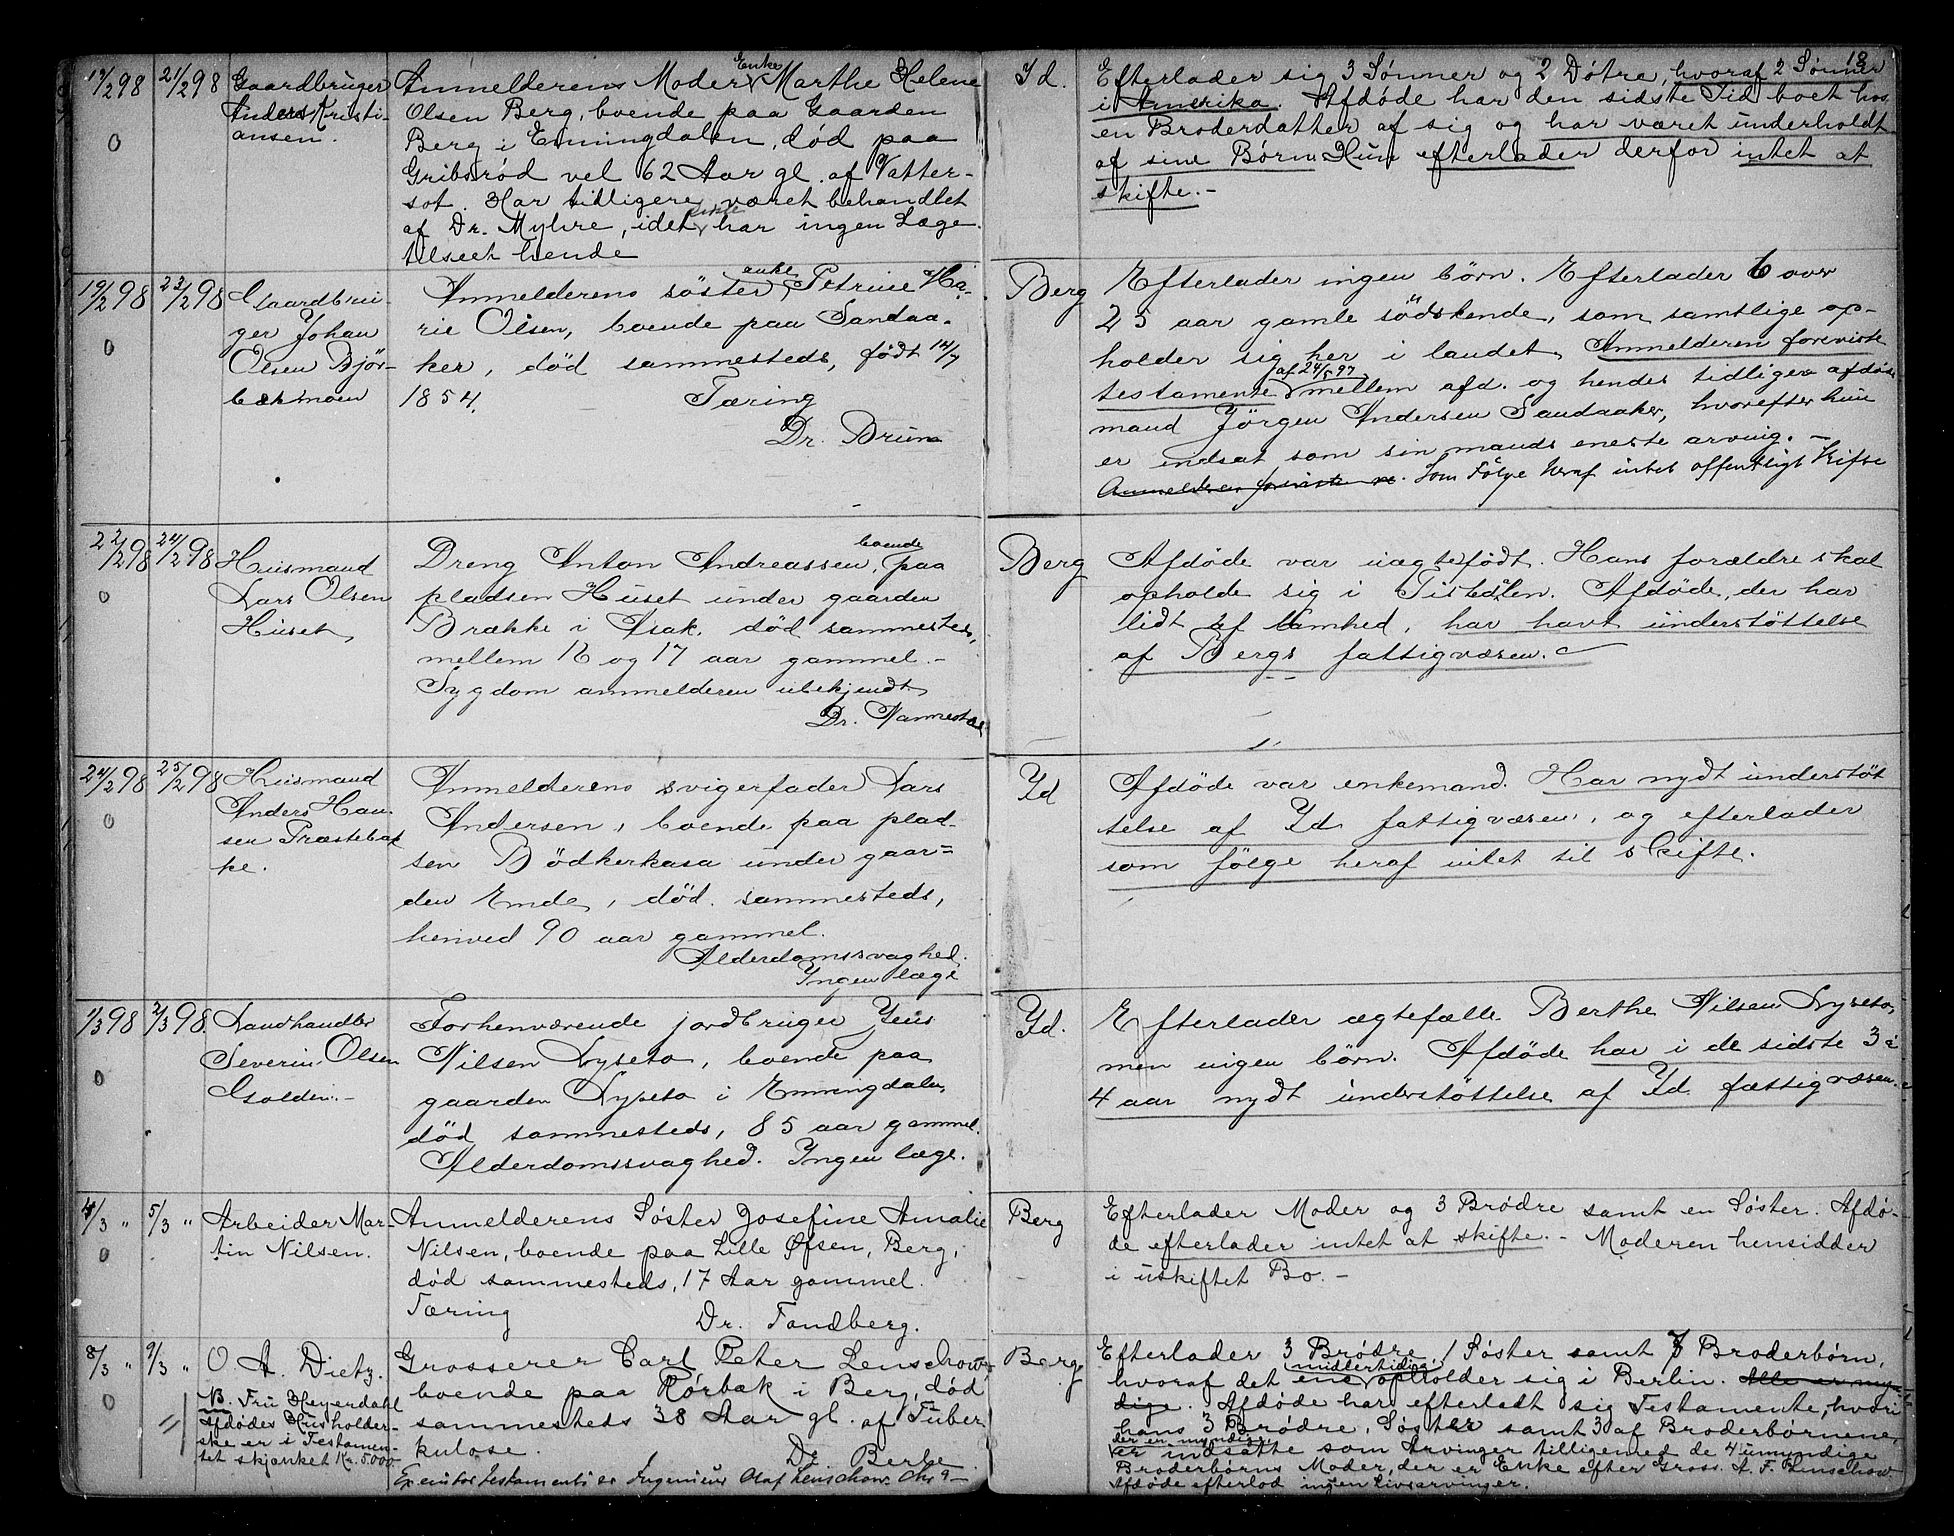 18
19/2 98
21/2 98
Gaardbruger
Anders Kristi-
ansen.
0
Anmelderens Moder, Enke Marthe Helene
Olsen Berg, boende paa Gaarden
Berg i Enningdalen, død paa
Gribsrød vel 62 Aar gl. af Vatter-
sot. Har tidligere været behandlet
af Dr. Myhre, idet har ingen Læge
tilseet hende
Id.
Efterlader sig 3 Sønner og 2 Døtre, hvoraf 2 Sønner
i Amerika. Afdøde har den sidste Tid boet hos
en Broderdatter af sig og har været underholdt
af sine Børn. Hun efterlader derfor intet at
skifte.-
19/2 98
23/2 98
Gaardbru-
ger Johan
Olsen Bjør-
bækmoen
0
Anmelderens søster, enke Petrine Ma-
rie Olsen, boende paa Sandaa-
ker, død sammesteds, født 14/7
1854. Tæring
Dr. Bruun
Berg
Efterlader ingen børn. Efterlader 6 over
25 aar gamle södskende, som samtlige op-
holder sig her i landet. Anmelderen foreviste
testamente af 24/5 97 mellem afd. og hendes tidligere afdøde
mand Jörgen Andersen Sandaaker, hvorefter hun
er indsat som sin mands eneste arving. -
Anmelderen foreviste. Som Følge heraf intet offentligt Skifte
22/2 98
24/2 98
Husmand
Lars Olsen
Huset,
0
Dreng Anton Andreassen, boende paa
pladsen Huset under gaarden
Brække i Asak, død sammesteds,
mellem 16 og 17 aar gammel.-
Sygdom anmelderen ubekjendt
Dr. Nannestad
Berg
Afdøde var uægtefödt. Hans forældre skal
opholde sig i Tistedalen. Afdøde, der har
lidt af lamhed, har havt understøttelse
af Bergs fattigvæsen.
24/2 98
25/2 98
Husmand
Anders Han-
sen Præstebak-
ke.
0
Anmelderens svigerfader Lars
Andersen, boende paa plad-
sen Bödkerkasa under gaar-
den Ende, död sammesteds,
henved 90 aar gammel.
Alderdomssvaghed.
Ingen læge
Id
Afdöde var enkemand. Har nydt understöt
telse af Id fattigvæsen, og efterlader
som fölge heraf intet til skifte.
1/3 98
2/3 98.
Landhandler
Severin Olsen
Holden.-
0
Forhenværende jordbruger Jens
Nilsen Lyseto, boende paa
gaarden Lyseto i Enningdalen,
död sammesteds, 85 aar gammel.
Alderdomssvaghed. Ingen læge.
Id.
Efterlader ægtefælle Berthe Nilsen Lyseto,
men ingen börn. Afdöde har i de sidste 3 à
4 aar nydt understöttelse af Id fattigvæsen.
4/3 "
5/3 "
Arbeider Mar-
tin Nilsen.
0
Anmelderens Søster Josefine Amalie
Nilsen, boende paa Lille Øfsen, Berg,
død sammesteds, 17 Aar gammel.
Tæring Dr. Tandberg.
Berg
Efterlader Moder og 3 Brødre samt en Søster. Afdø-
de efterlader intet at skifte.- Moderen hensidder
i uskiftet Bo.-
8/3 "
9/3 "
O. A. Dietz.
0
B. Fru Heyerdahl
Afdødes Husholder-
ske er i Testamen-
tet skjænket Kr. 5.000
Grosserer Carl Peter Lenschow,
boende paa Rørbæk i Berg, død
sammesteds 38 Aar gl. af Tuber-
kulose. Dr. Berle
Executor testamenti er Ingeniør Olaf Lenschow. Chr.a-
Berg
Efterlader 3 Brødre, 1 Søster samt 7 Broderbørn,
hvoraf det ene midlertidig opholder sig i Berlin. Alle er myn-
dige. Afdøde har efterladt sig Testamente, hvori
hans 3 Brødre, Søster samt 3 af Broderbørnene,
der er myndige, er indsatte som Arvinger tilligemed de 4 umyndige
Broderbørns Moder, der er Enke efter Gross. A. F. Lenschow
Afdøde efterlod ingen Livsarvinger.